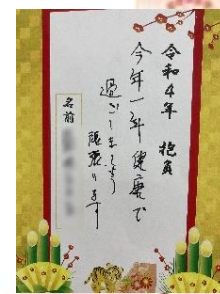 令和4年 抱負
今年一年健康で
過ごしましょう
頑張ります
名前